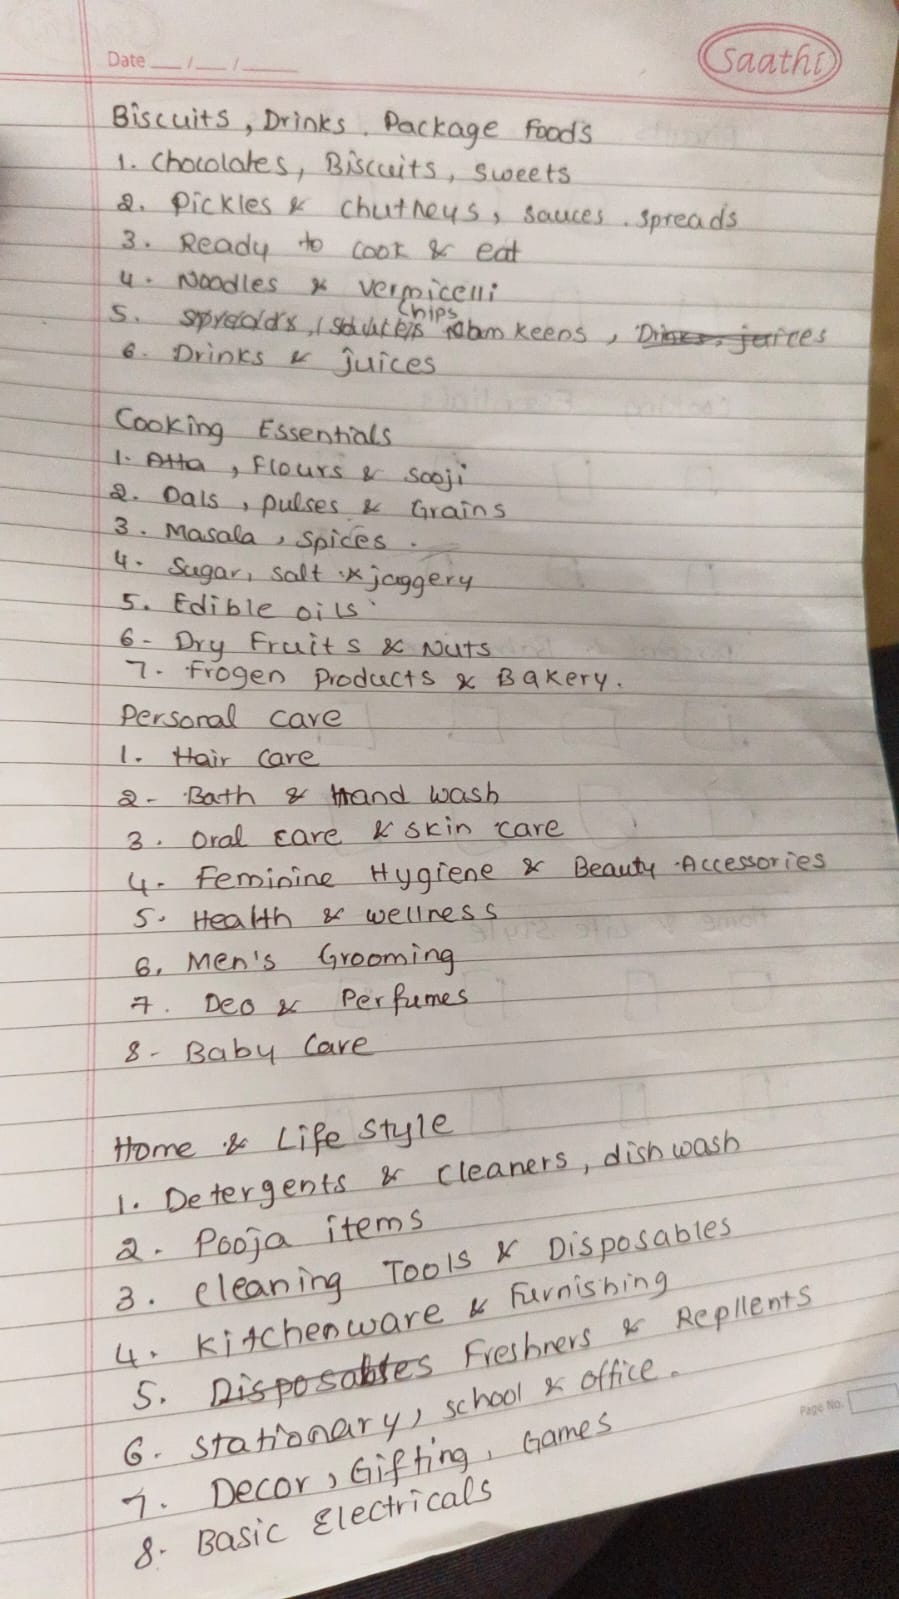 Date __/__/____
Saathi
Biscuits, Drinks. Package Foods
1. Chocolates, Biscuits, Sweets
2. Pickles & chutneys, sauces. spreads
3. Ready to cook & eat
4. Noodles & vermicelli
5. Chips Namkeens, Drinks, juices
6. Drinks & juices
Cooking Essentials
1. Atta, Flours & Sooji
2. Dals, pulses & Grains
3. Masala, Spices.
4. Sugar, salt & jaggery
5. Edible oils
6- Dry Fruits & Nuts
7. Frogen Products & Bakery.
Personal Care
1. Hair Care
2- Bath & Hand wash
3. Oral care & skin care
4. Feminine Hygiene & Beauty Accessories
5. Health & wellness
6. Men's Grooming
7. Deo & Perfumes
8- Baby Care
Home & Life Style
1. Detergents & cleaners, dish wash
2. Pooja items
3. Cleaning Tools & Disposables
4. Kitchenware & Furnishing
5. Disposables Freshners & Repllents
6. Stationary, school & office.
7. Decor, Gifting, Games
8. Basic Electricals
Page No.